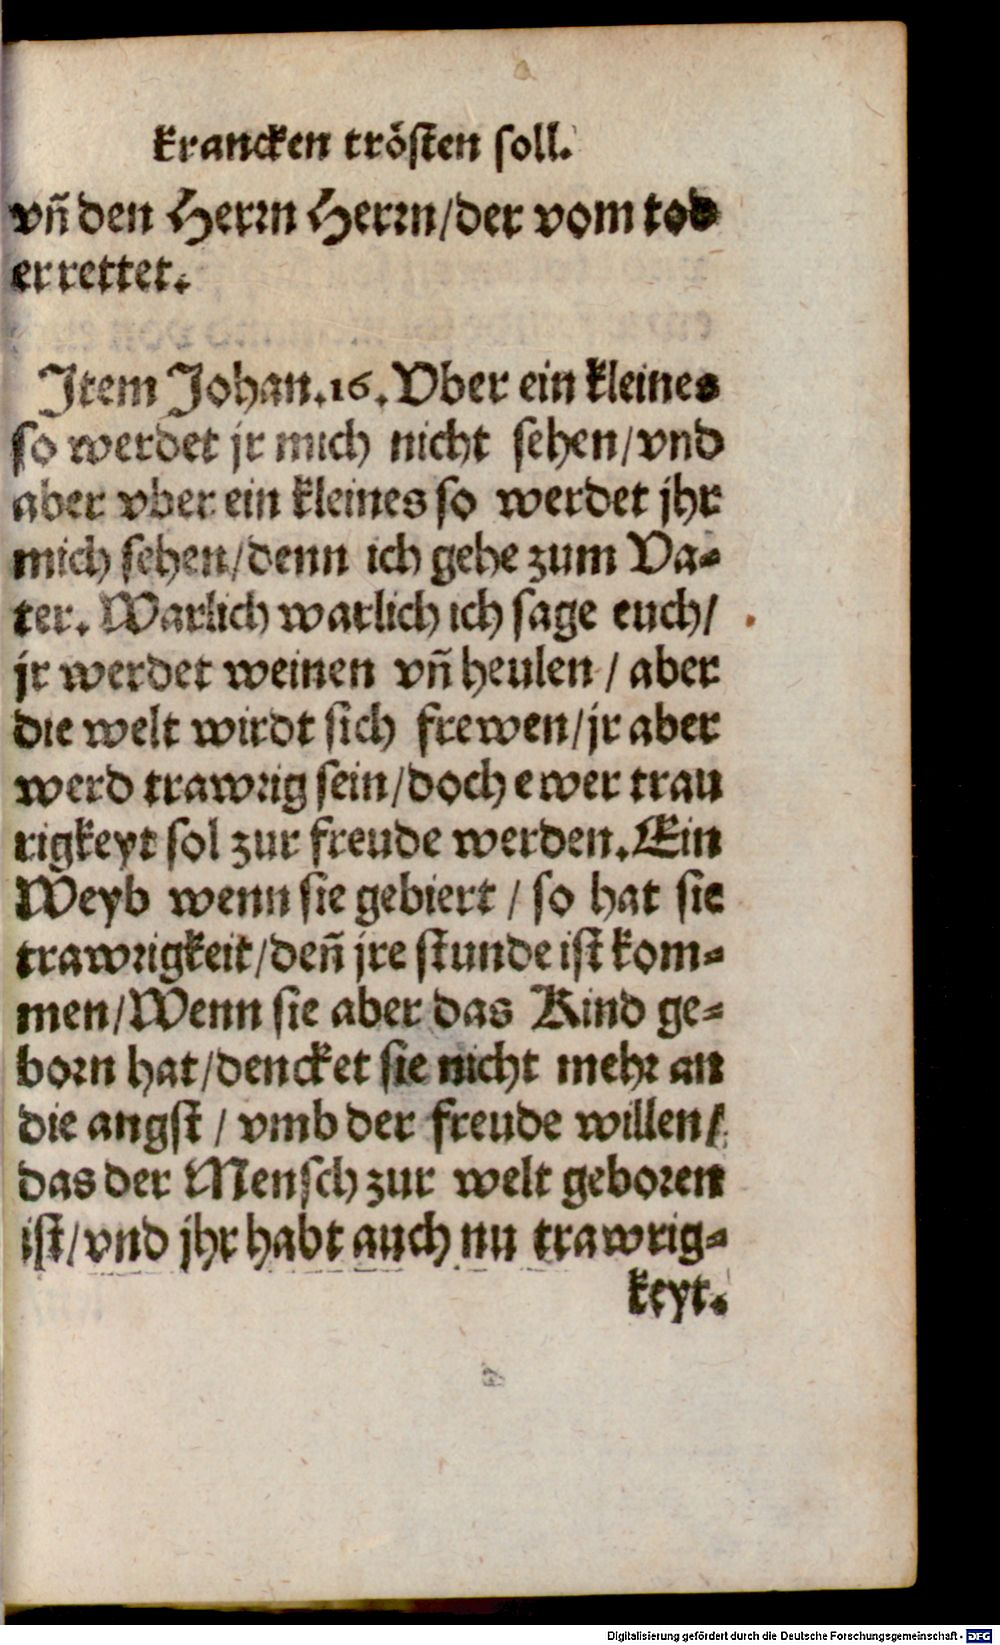 krancken trösten soll.
vñ den Herrn Herrn/der vom tod
errettet.
Item Johan.16. Vber ein kleines
so werdet jr mich nicht sehen/vnd
aber vber ein kleines so werdet jhr
mich sehen/denn ich gehe zum Va-
ter. Warlich warlich ich sage euch/
jr werdet weinen vñ heulen/ aber
die welt wirdt sich frewen/jr aber
werd trawrig sein/doch ewer trau
rigkeyt sol zur freude werden. Ein
Weyb wenn sie gebiert / so hat sie
trawrigkeit/deñ jre stunde ist kom-
men/Wenn sie aber das Kind ge-
born hat/dencket sie nicht mehr an
die angst / vmb der freude willen/
das der Mensch zur welt geboren
ist/vnd jhr habt auch nu trawrig-
keyt.
Digitalisierung gefördert durch die Deutsche Forschungsgemeinschaft - DFG